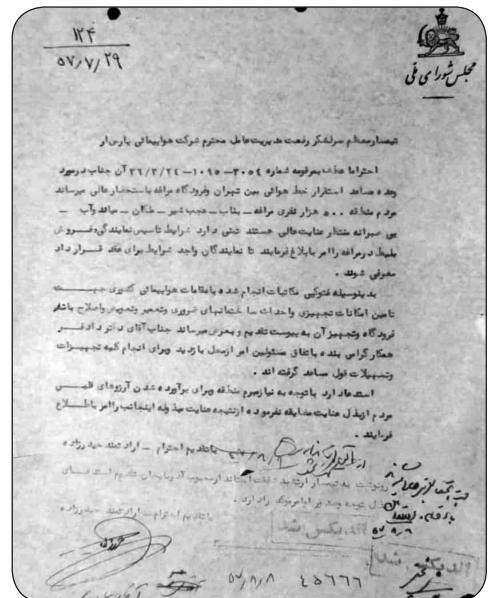 ۱۲۴
۵۷/۷/۲۹
مجلس شورای ملی
تیمسار معظم سرلشکر رفعت مدیریت عامل محترم شرکت هواپیمائی پارس ار
احتراما عطف بمرقومه شماره ۳۰۵۴-۱۰۹۵-۳۶/۳/۲۴ آن جناب در مورد
وعده مساعد استقرار خط هوائی بین تهران و فرودگاه مراغه باستحضار عالی میرساند
مردم منطقه ۵۰۰ هزار نفری مراغه ـ بناب ـ عجب شیر ـ ملکان ـ میاندوآب ـ
بی صبرانه منتظر عنایت عالی هستند تمنی دارد شرایط تاسیس نمایندگی و فروش
بلیط در مراغه را امر بابلاغ فرمایند تا نمایندگان واجد شرایط برای عقد قرار داد
معرفی شوند .
بدینوسیله فتوکپی مکاتبات انجام شده با مقامات هواپیمائی کشوری جهت
تامین امکانات تجهیزی و احداث ساختمانهای ضروری و تعمیر و تعویض و اصلاح باند
فرودگاه و تجهیز آن به پیوست تقدیم و بعرض میرساند جناب آقای دکتر دادفر
همکار گرامی بنده باتفاق مسئولین امر از محل بازدید وبرای انجام کلیه تجهیزات
وتسهیلات قول مساعد گرفته اند .
استدعا دارد با توجه به نیاز مبرم منطقه وبرای برآورده شدن آرزوهای قلبی
مردم از بذل عنایت مضایقه نفرموده از نتیجه عنایت مبذوله اینجانب را امر باطلاع
فرمایند .
باتقدیم احترام ـ ارادتمند حیدرزاده
رونوشت به تیمسار
باتقدیم احترام ـ ارادتمند حیدرزاده
اندیکس شد
۵۷/۸/۸
اندیکس شد